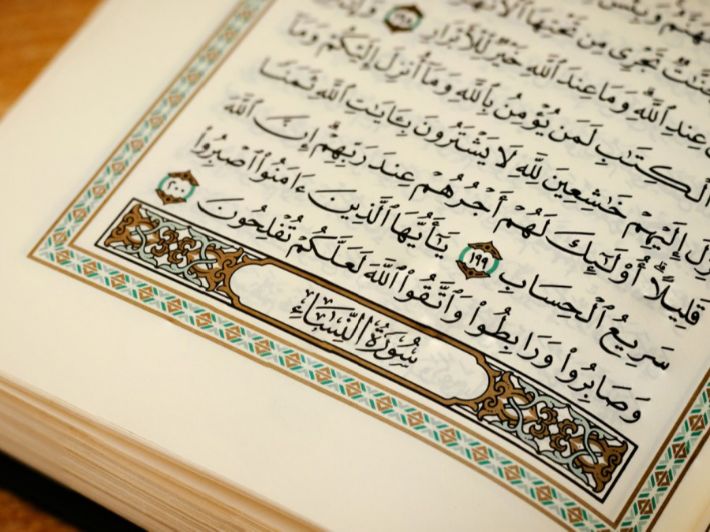 وَبِئْسَ
تَجْرِى مِن تَحْتِهَا ٱلْأَنْهَٰرُ
عِندِ ٱللَّهِ ۗ وَمَا عِندَ ٱللَّهِ خَيْرٌ لِّلْأَبْرَارِ ١٩٨ وَإِنَّ
ٱلْكِتَٰبِ لَمَن يُؤْمِنُ بِٱللَّهِ وَمَآ أُنزِلَ إِلَيْكُمْ وَمَآ
إِلَيْهِمْ خَٰشِعِينَ لِلَّهِ لَا يَشْتَرُونَ بِـَٔايَٰتِ ٱللَّهِ ثَمَنًا
قَلِيلًا ۗ أُو۟لَٰٓئِكَ لَهُمْ أَجْرُهُمْ عِندَ رَبِّهِمْ ۗ إِنَّ ٱللَّهَ
سَرِيعُ ٱلْحِسَابِ ١٩٩ يَٰٓأَيُّهَا ٱلَّذِينَ ءَامَنُوا۟ ٱصْبِرُوا۟
وَصَابِرُوا۟ وَرَابِطُوا۟ وَٱتَّقُوا۟ ٱللَّهَ لَعَلَّكُمْ تُفْلِحُونَ ٢٠٠
سُورَةُ النِّسَاءِ